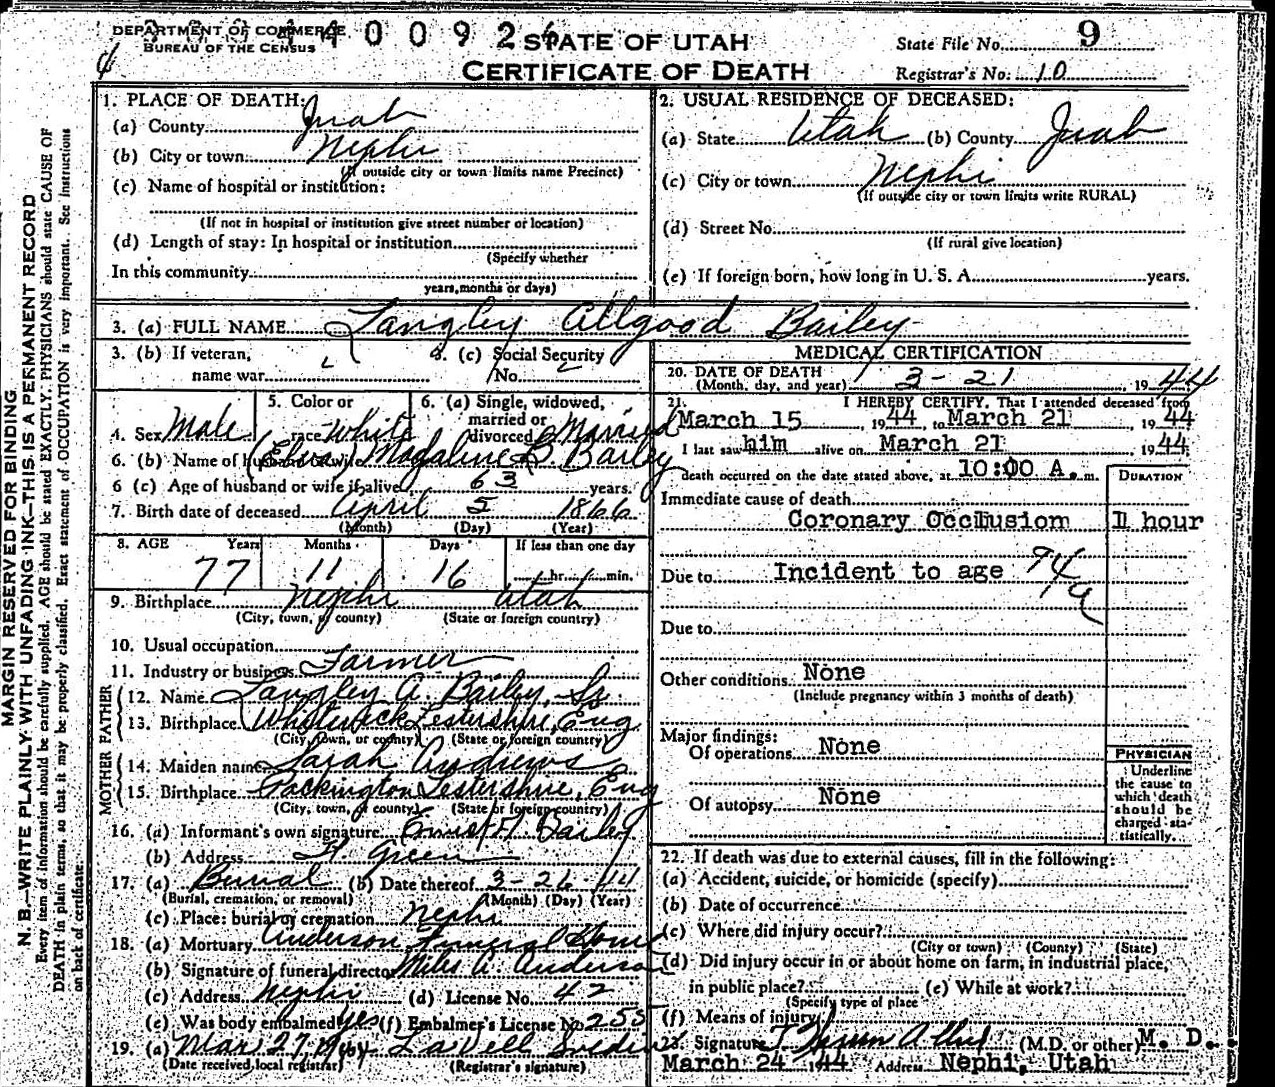 DEPARTMENT OF COMMERCE
BUREAU OF THE CENSUS
4 4 0 0 9 2
STATE OF UTAH
CERTIFICATE OF DEATH
State File No. 9
Registrar's No. 10
MARGIN RESERVED FOR BINDING
N. B.—WRITE PLAINLY WITH UNFADING INK—THIS IS A PERMANENT RECORD
Every item of information should be carefully supplied. AGE should be stated EXACTLY. PHYSICIANS should state CAUSE OF
DEATH in plain terms, so that it may be properly classified. Exact statement of OCCUPATION is very important. See instructions
on back of certificate.
1. PLACE OF DEATH:
(a) County Juab
(b) City or town Nephi
(If outside city or town limits name Precinct)
(c) Name of hospital or institution:
(If not in hospital or institution give street number or location)
(d) Length of stay: In hospital or institution
(Specify whether
In this community
years, months or days)
2. USUAL RESIDENCE OF DECEASED:
(a) State Utah (b) County Juab
(c) City or town Nephi
(If outside city or town limits write RURAL)
(d) Street No.
(If rural give location)
(e) If foreign born, how long in U. S. A. years.
3. (a) FULL NAME Langley Allgood Bailey
3. (b) If veteran,
name war
3. (c) Social Security
No.
4. Sex Male
5. Color or
race White
6. (a) Single, widowed,
married or
divorced Married
6. (b) Name of husband or wife (Elva) Magaline B. Bailey
6 (c) Age of husband or wife if alive 63 years.
7. Birth date of deceased April 5 1866
(Month) (Day) (Year)
8. AGE Years Months Days If less than one day
77 11 16 hr. min.
9. Birthplace Nephi Utah
(City, town, or county) (State or foreign country)
10. Usual occupation
11. Industry or business Farmer
FATHER
12. Name Langley A. Bailey, Sr.
13. Birthplace Whitewick Lestershire, Eng
(City, town, or county) (State or foreign country)
MOTHER
14. Maiden name Sarah Andrews
15. Birthplace Packington Lestershire, Eng
(City, town, or county) (State or foreign country)
16. (a) Informant's own signature Bailey
(b) Address Green
17. (a) Burial (b) Date thereof 3-26-44
(Burial, cremation, or removal) (Month) (Day) (Year)
(c) Place: burial or cremation Nephi
18. (a) Mortuary Anderson Funeral Home
(b) Signature of funeral director Miles A. Anderson
(c) Address Nephi (d) License No. 42
(e) Was body embalmed yes (f) Embalmer's License No. 255
19. (a) Mar 27, 1944 LaVell
(Date received local registrar) (Registrar's signature)
MEDICAL CERTIFICATION
20. DATE OF DEATH
(Month, day, and year) 3-21 1944
21. I HEREBY CERTIFY, That I attended deceased from
March 15 , 1944, to March 21 , 1944
I last saw him alive on March 21 , 1944.
death occurred on the date stated above, at 10:00 A. m.
DURATION
Immediate cause of death
Coronary Occlusion 1 hour
Due to Incident to age 94a
Due to
Other conditions None
(Include pregnancy within 3 months of death)
Major findings:
Of operations None
Of autopsy None
PHYSICIAN
Underline
the cause to
which death
should be
charged sta-
tistically.
22. If death was due to external causes, fill in the following:
(a) Accident, suicide, or homicide (specify)
(b) Date of occurrence
(c) Where did injury occur?
(City or town) (County) (State)
(d) Did injury occur in or about home on farm, in industrial place,
in public place? (e) While at work?
(Specify type of place
(f) Means of injury
23. Signature (M.D. or other) M. D.
March 24 1944 Address Nephi, Utah